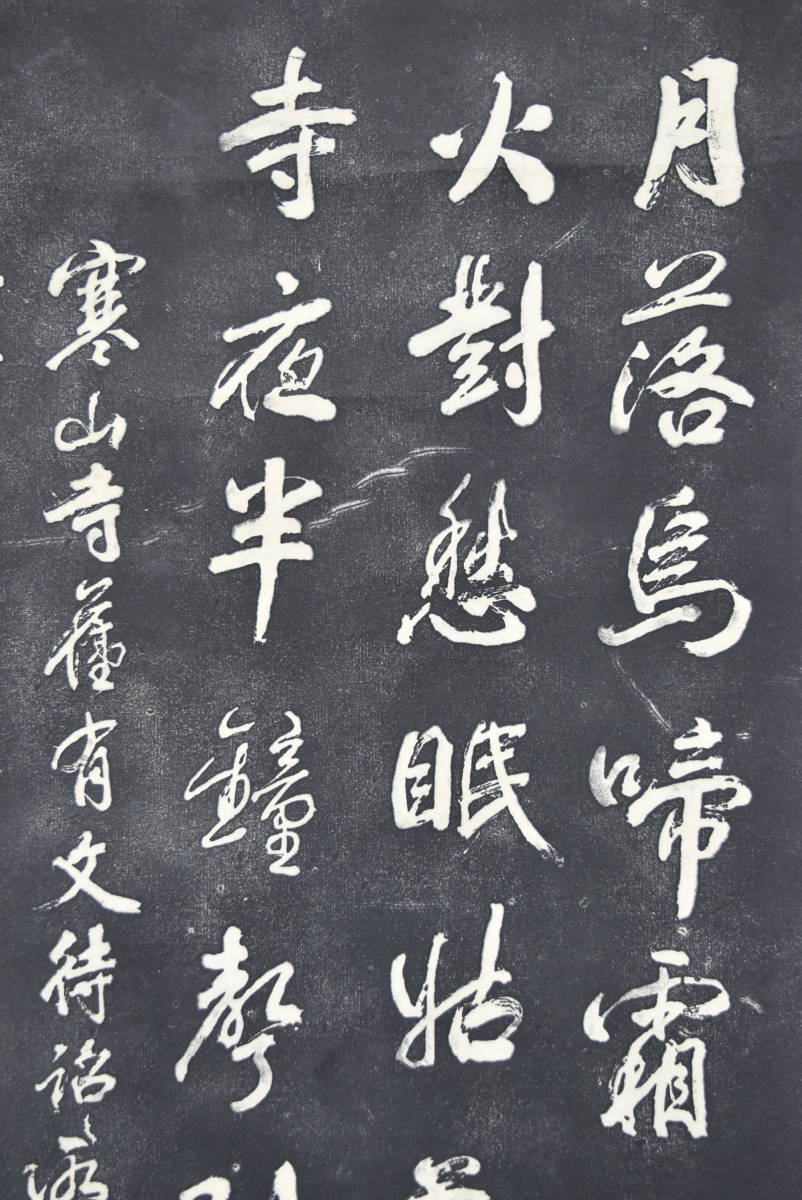 月落烏啼霜
火對愁眠姑
寺夜半鐘聲
寒山寺舊有文待詔